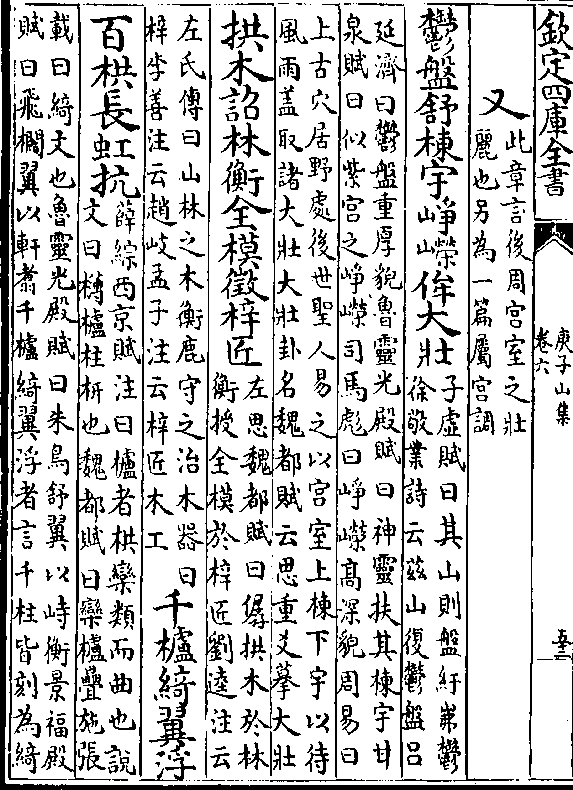 欽定四庫全書
庚子山集
卷六
又
此章言後周宮室之壯
麗也另為一篇屬宮調
鬱盤舒棟宇崢嶸侔大壯
子虛賦曰其山則盤紆岪鬱
徐敬業詩云茲山復鬱盤吕
延濟曰鬱盤重厚貌魯靈光殿賦曰神靈扶其棟宇甘
泉賦曰似紫宮之崢嶸司馬彪曰崢嶸髙深貌周易曰
上古穴居野處後世聖人易之以宮室上棟下宇以待
風雨蓋取諸大壯大壯卦名魏都賦云思重爻摹大壯
拱木詔林衡全模徵梓匠
左思魏都賦曰僝拱木於林
衡授全模於梓匠劉逵注云
左氏傳曰山林之木衡鹿守之治木器曰
梓李善注云趙岐孟子注云梓匠木工
千櫨綺翼浮
百栱長虹抗
薛綜西京賦注曰櫨者栱欒類而曲也說
文曰欂櫨柱枅也魏都賦曰欒櫨疊施張
載曰綺文也魯靈光殿賦曰朱鳥舒翼以峙衡景福殿
賦曰飛櫩翼以軒翥千櫨綺翼浮者言千柱皆刻為綺